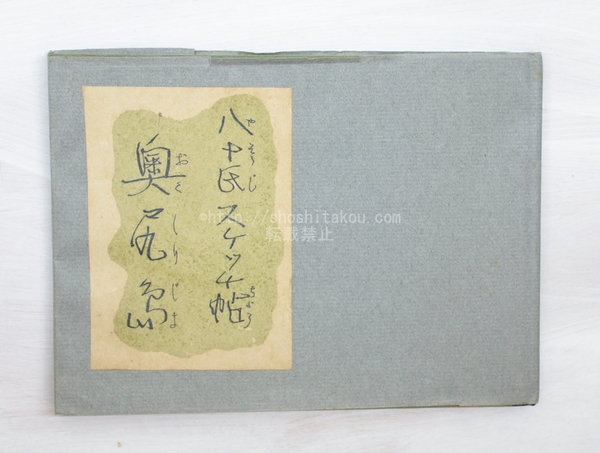 八十氏スケッチ帖
やそうじ
ちょう
奥尻島
おくしりじま
©http://choshitakou.com
転載禁止